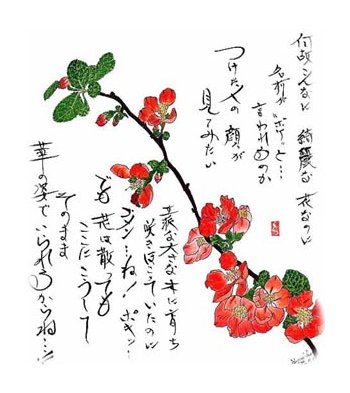 何故こんなに 綺麗な 花なのに
名前が〝ボケ〟と…
言われるのか
つけた人の 顔が
見てみたい
大きな木に育ち
咲きほこっていたのに
ポキン…
でも 花は散っても
ここに こうして
そのまま
華の姿で いられるからね…!